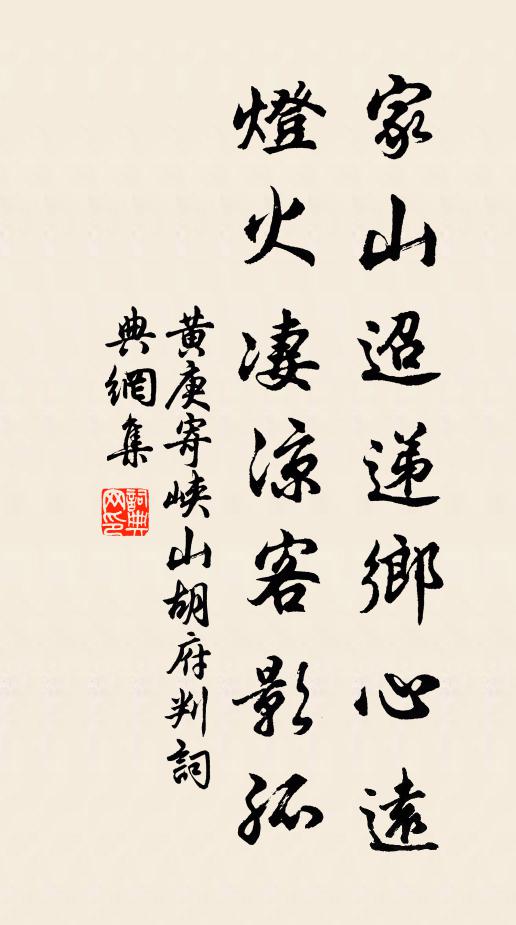 家山迢遞鄉心遠
燈火凄涼客影孤
黃庚寄峽山胡府判詞
典網集
詞典网印